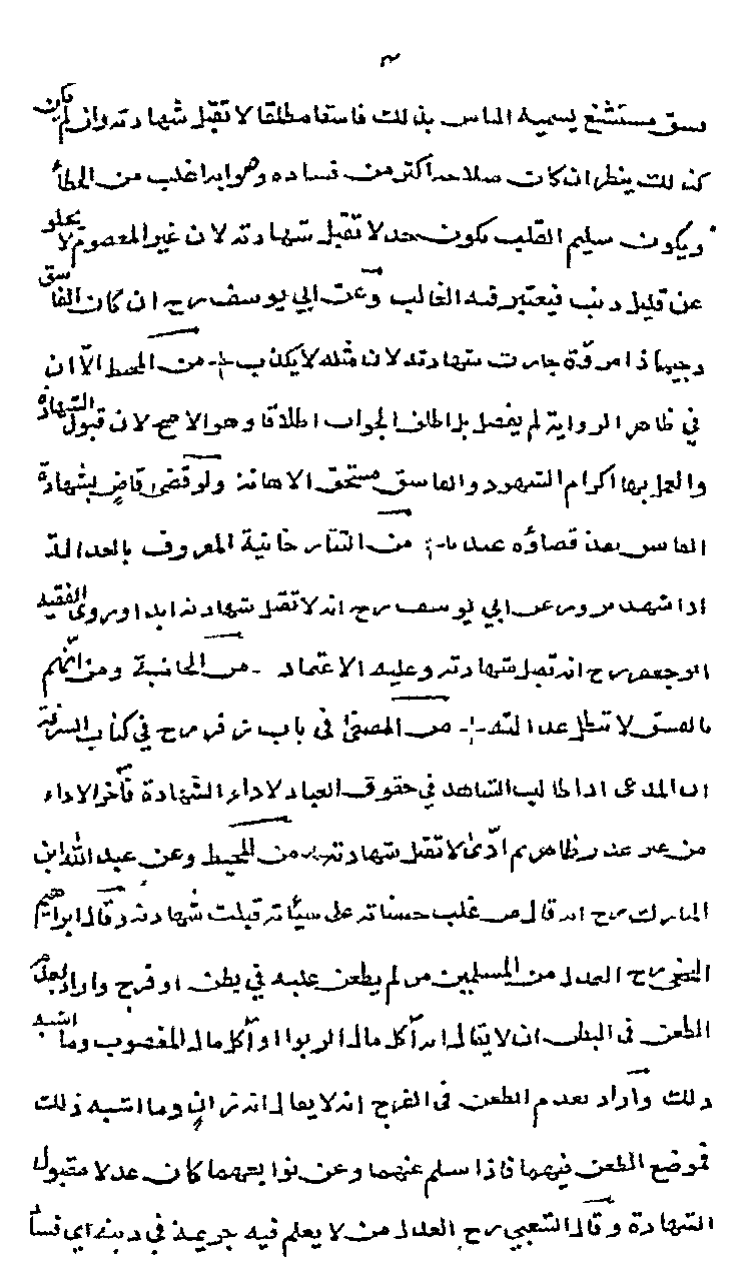 ٣
فسق مستشنع يسميه الناس بذلك فاسقا مطلقا لا تقبل شهادته وان لم يكن
كذلك ينظر ان كان صلاحه اكثر من فساده وهو ابدا غلب من الخطأ
ويكون سليم القلب يكون عدلا تقبل شهادته لان غير المعصوم لا يخلو
عن قليل ذنب فيعتبر فيه الغالب وعن ابي يوسف رح ان كان الفاسق
وجيها ذا مروّة جازت شهادته لان مثله لا يكذب من المحيط الّا ان
في ظاهر الرواية لم يفصل بل اطلق الجواب اطلاقا وهو الاصح لان قبول الشهادة
والعمل بها اكرام الشهود والفاسق مستحق الاهانة ولو قضى قاضٍ بشهادة
الفاسق نفذ قضاؤه عندنا من التتارخانية المعروف بالعدالة
اذا شهد بزور عن ابي يوسف رح انه لا تقبل شهادته ابدا وروى الفقيه
ابو جعفر رح انه تقبل شهادته وعليه الاعتماد من الخانية ومن اتّهم
بالفسق لا تبطل عدالته من المصفى في باب زفر رح في كتاب السرقة
ان المدعى اذا طالب الشاهد في حقوق العباد لاداء الشهادة فأخر الاداء
من غير عذر ظاهر ثم ادّى لا تقبل شهادته من المحيط وعن عبد الله ابن
المبارك رح انه قال من غلب حسناته على سيئاته قبلت شهادته وقال ابراهيم
النخعي رح العدل من المسلمين من لم يطعن عليه في بطن او فرج واراد بعدم
الطعن في البطن ان لا يقال انه آكل مال الربوا او آكل مال المغصوب وما اشبه
ذلك واراد بعدم الطعن في الفرج انه لا يقال انه زانٍ وما اشبه ذلك
فموضع الطعن فيهما فاذا سلم عنهما وعن توابعهما كان عدلا مقبول
الشهادة وقال الشعبي رح العدل من لا يعلم فيه جريمة في دينه اي فسأ